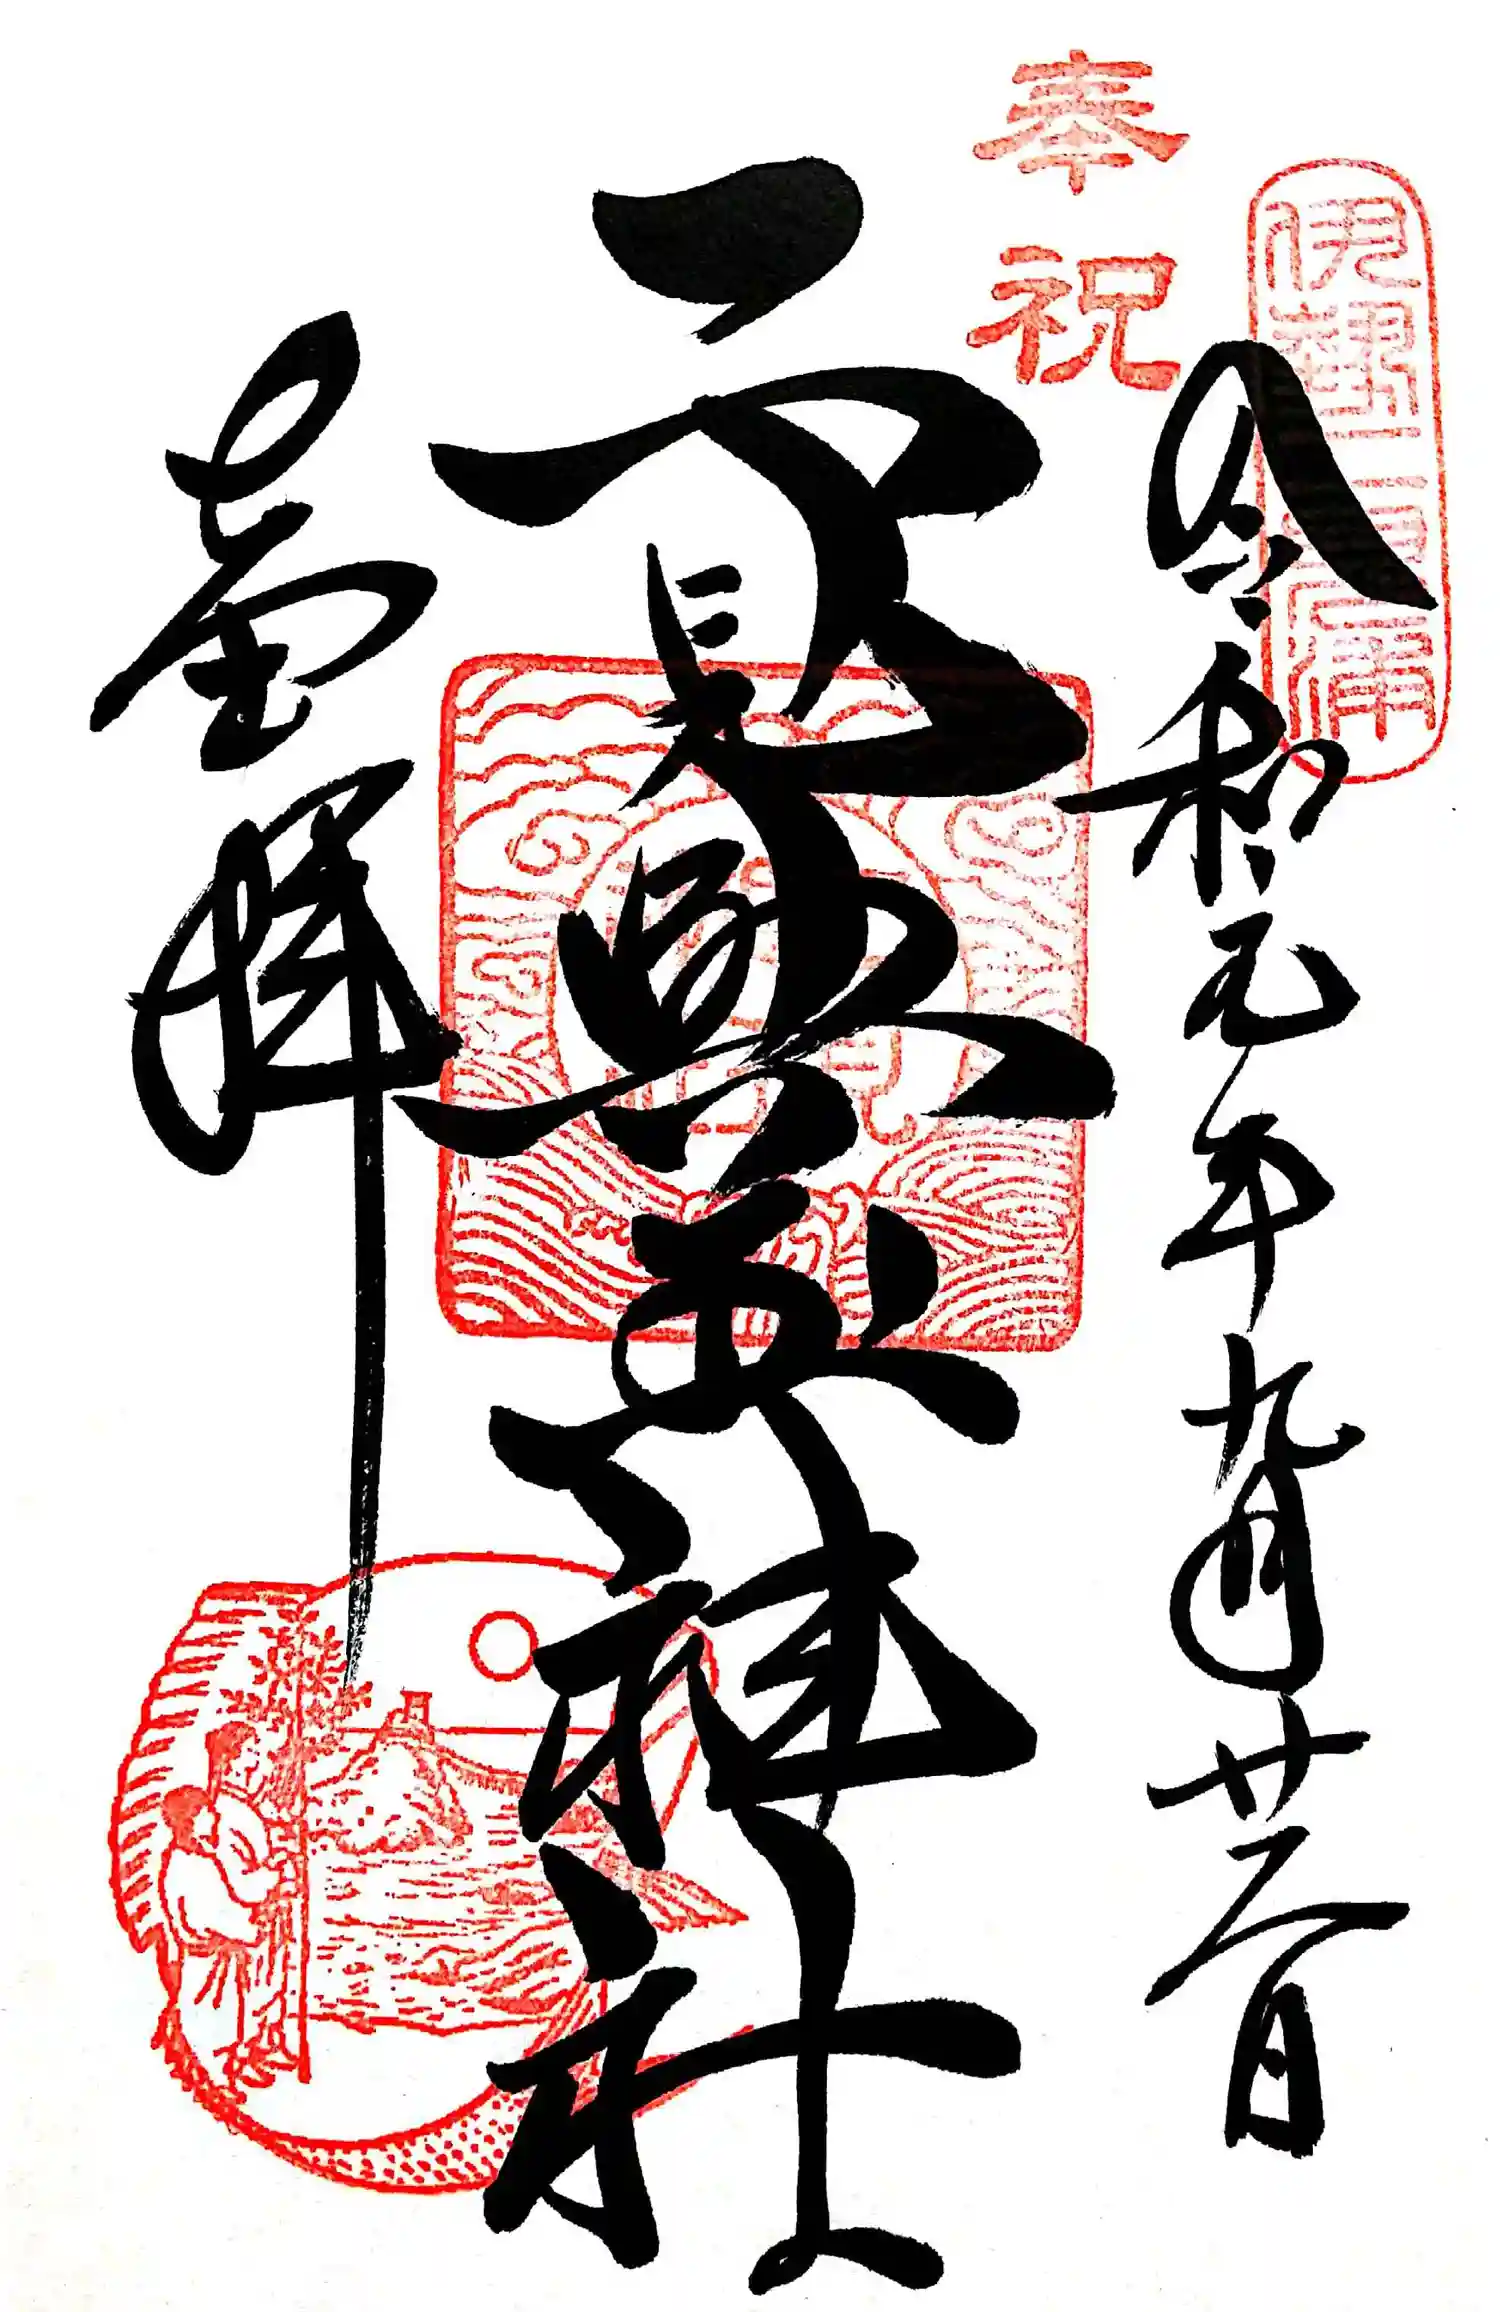 伊勢二見浦
奉祝
令和元年九月廿二日
二見興玉神社
拜